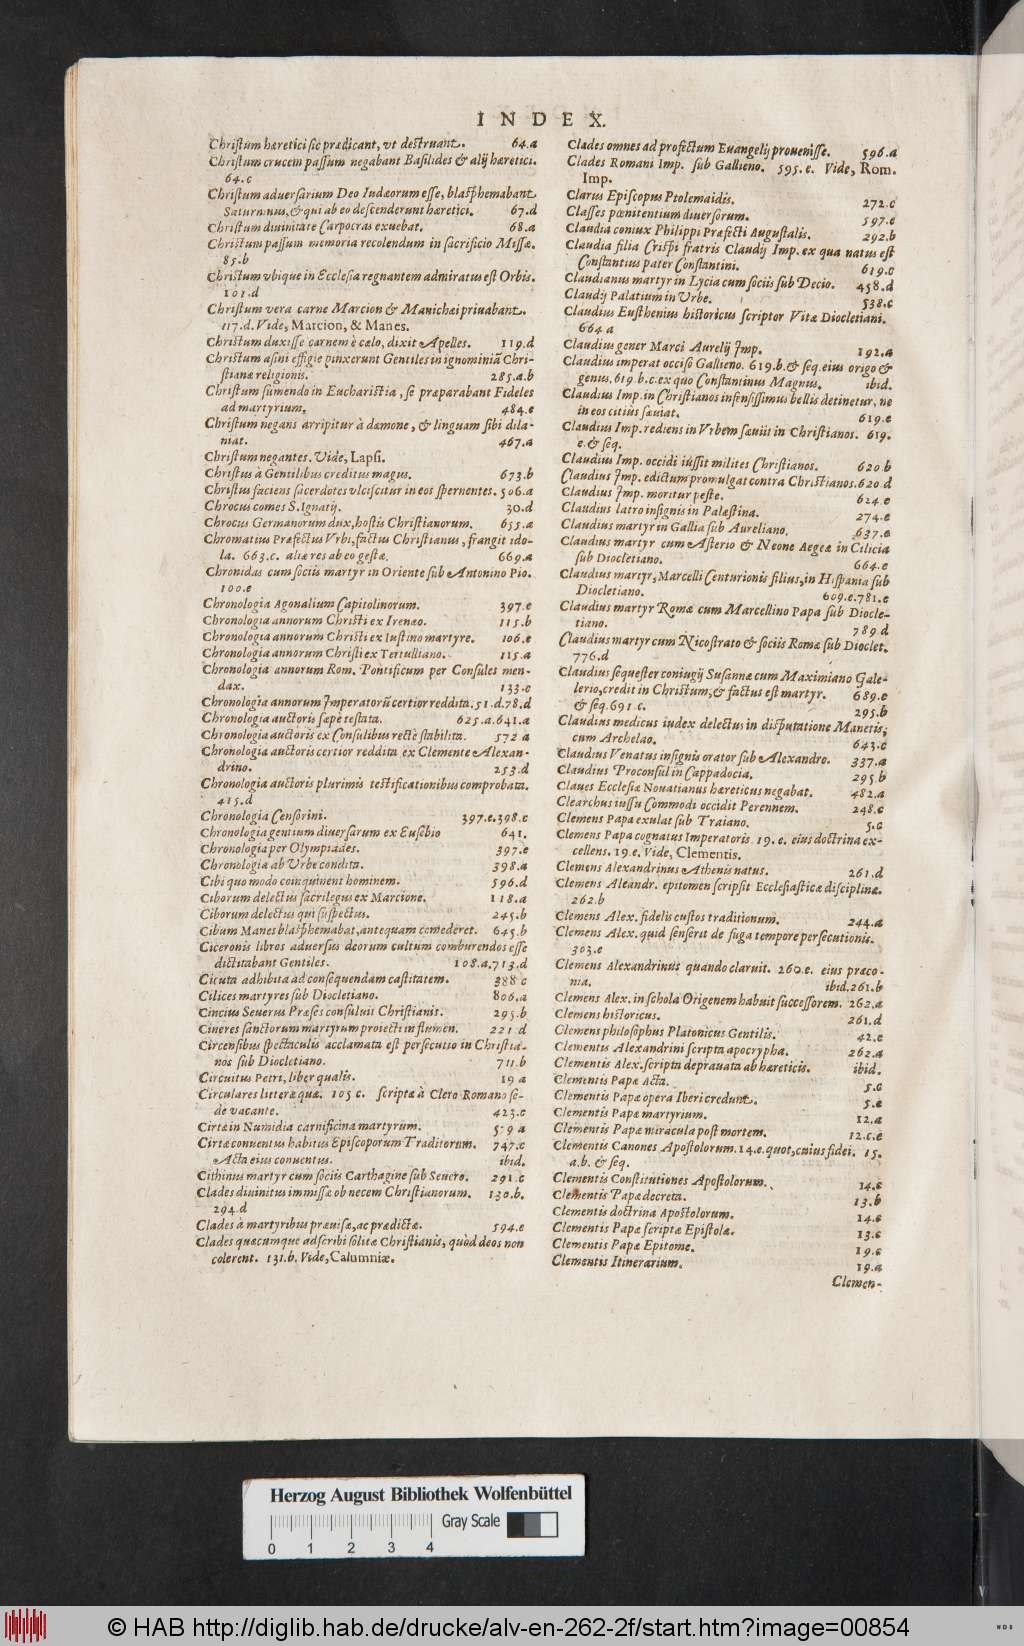 INDEX.
Christum hæretici sic prædicant, vt destruant. 64.a
Christum crucem passum negabant Basilides & alij hæretici.
64.c
Christum aduersarium Deo Iudæorum esse, blasphemabant
Saturninus, & qui ab eo descenderunt hæretici. 67.d
Christum diuinitate Carpocras exuebat. 68.a
Christum passum memoria recolendum in sacrificio Missæ.
85.b
Christum vbique in Ecclesia regnantem admiratus est Orbis.
101.d
Christum vera carne Marcion & Manichæi priuabant.
117.d. Vide, Marcion, & Manes.
Christum duxisse carnem è cælo, dixit Apelles. 119.d
Christum asini effigie pinxerunt Gentiles in ignominiã Chri-
stianæ religionis. 285.a.b
Christum sumendo in Eucharistia, se præparabant Fideles
ad martyrium. 484.e
Christum negans arripitur à dæmone, & linguam sibi dila-
niat. 467.a
Christum negantes. Vide, Lapsi.
Christus à Gentilibus creditus magus. 673.b
Christus faciens sacerdotes vlciscitur in eos spernentes. 506.a
Chrocus comes S. Ignatij. 30.d
Chrocus Germanorum dux, hostis Christianorum. 655.a
Chromatius Præfectus Vrbi, factus Christianus, frangit ido-
la. 663.c. aliæ res ab eo gestæ. 669.a
Chronidas cum sociis martyr in Oriente sub Antonino Pio.
100.e
Chronologia Agonalium Capitolinorum. 397.e
Chronologia annorum Christi ex Irenæo. 115.b
Chronologia annorum Christi ex Iustino martyre. 106.e
Chronologia annorum Christi ex Tertulliano. 115.a
Chronologia annorum Rom. Pontificum per Consules men-
dax. 133.c
Chronologia annorum Imperatorũ certior reddita. 51.d.78.d
Chronologia auctoris sæpe testata. 625.a.641.a
Chronologia auctoris ex Consulibus rectè stabilita. 572 a
Chronologia auctoris certior reddita ex Clemente Alexan-
drino. 253.d
Chronologia auctoris plurimis testificationibus comprobata.
415.d
Chronologia Censorini. 397.e.398.c
Chronologia gentium diuersarum ex Eusebio 641.
Chronologia per Olympiades. 397.e
Chronologia ab Vrbe condita. 398.a
Cibi quo modo coinquinent hominem. 596.d
Ciborum delectus sacrilegus ex Marcione. 118.a
Ciborum delectus qui suspectus. 245.b
Cibum Manes blasphemabat, antequam comederet. 645.b
Ciceronis libros aduersus deorum cultum comburendos esse
dictitabant Gentiles. 108.a.713.d
Cicuta adhibita ad consequendam castitatem. 388 c
Cilices martyres sub Diocletiano. 806.a
Cincius Seuerus Præses consuluit Christianis. 295.b
Cineres sanctorum martyrum proiecti in flumen. 221 d
Circensibus spectaculis acclamata est persecutio in Christia-
nos sub Diocletiano. 711.b
Circuitus Petri, liber qualis. 19 a
Circulares litteræ quæ. 105 c. scriptæ à Clero Romano se-
de vacante. 423.c
Cirtæ in Numidia carnificina martyrum. 579 a
Cirtæ conuentus habitus Episcoporum Traditorum. 747.c
Acta eius conuentus. ibid.
Cithinus martyr cum sociis Carthagine sub Seuero. 291.c
Clades diuinitus immissæ ob necem Christianorum. 130.b.
294.d
Clades à martyribus præuisæ, ac prædictæ. 594.e
Clades quæcumque adscribi solitæ Christianis, quòd deos non
colerent. 131.b. Vide, Calumniæ.
Clades omnes ad profectum Euangelij prouenisse. 596.a
Clades Romani Imp. sub Gallieno. 595.e. Vide, Rom.
Imp.
Clarus Episcopus Ptolemaidis. 272.c
Classes pœnitentium diuersorum. 597.c
Claudia coniux Philippi Præfecti Augustalis. 292.b
Claudia filia Crispi fratris Claudij Imp. ex qua natus est
Constantius pater Constantini. 619.c
Claudianus martyr in Lycia cum sociis sub Decio. 458.d
Claudij Palatium in Vrbe. 538.c
Claudius Eusthenius historicus scriptor Vitæ Diocletiani.
664 a
Claudius gener Marci Aurelij Imp. 192.a
Claudius imperat occiso Gallieno. 619.b. & seq. eius origo &
genus. 619.b.c. ex quo Constantinus Magnus. ibid.
Claudius Imp. in Christianos infensissimus bellis detinetur, ne
in eos citiùs sæuiat. 619.e
Claudius Imp. rediens in Vrbem sæuiit in Christianos. 619.
e. & seq.
Claudius Imp. occidi iussit milites Christianos. 620 b
Claudius Imp. edictum promulgat contra Christianos. 620 d
Claudius Imp. moritur peste. 624.e
Claudius latro insignis in Palæstina. 274.e
Claudius martyr in Gallia sub Aureliano. 637.e
Claudius martyr cum Asterio & Neone Aegeæ in Cilicia
sub Diocletiano. 664.e
Claudius martyr, Marcelli Centurionis filius, in Hispania sub
Diocletiano. 609.e.781.e
Claudius martyr Romæ cum Marcellino Papa sub Diocle-
tiano. 789 d
Claudius martyr cum Nicostrato & sociis Romæ sub Dioclet.
776.d
Claudius sequester coniugij Susannæ cum Maximiano Gale-
lerio, credit in Christum, & factus est martyr. 689.e
& seq. 691.c. 295.b
Claudius medicus iudex delectus in disputatione Manetis,
cum Archelao. 643.c
Claudius Venatus insignis orator sub Alexandro. 337.a
Claudius Proconsul in Cappadocia. 295 b
Claues Ecclesiæ Nouatianus hæreticus negabat. 482.a
Clearchus iussu Commodi occidit Perennem. 248.c
Clemens Papa exulat sub Traiano. 5.c
Clemens Papa cognatus Imperatoris 19.e. eius doctrina ex-
cellens. 19.e. Vide, Clementis.
Clemens Alexandrinus Athenis natus. 261.d
Clemens Aleandr. epitomen scripsit Ecclesiasticæ disciplinæ.
262.b
Clemens Alex. fidelis custos traditionum. 244.a
Clemens Alex. quid senserit de fuga tempore persecutionis.
303.e
Clemens Alexandrinus quando claruit. 260.e. eius præco-
nia. ibid.261.b
Clemens Alex. in schola Origenem habuit successorem. 262.a
Clemens historicus. 261.d
Clemens philosophus Platonicus Gentilis. 42.e
Clementis Alexandrini scripta apocrypha. 262.a
Clementis Alex. scripta deprauata ab hæreticis. ibid.
Clementis Papæ Acta. 5.c
Clementis Papæ opera Iberi credunt. 5.e
Clementis Papæ martyrium. 12.a
Clementis Papæ miracula post mortem. 12.c.e
Clementis Canones Apostolorum. 14.e. quot, cuius fidei. 15.
a.b. & seq.
Clementis Constitutiones Apostolorum. 14.e
Clementis Papæ decreta. 13.b
Clementis doctrina Apostolorum. 14.e
Clementis Papæ scriptæ Epistolæ. 13.c
Clementis Papæ Epitome. 19.c
Clementis Itinerarium. 19.a
Clemen-
Herzog August Bibliothek Wolfenbüttel
0 1 2 3 4 Gray Scale
© HAB http://diglib.hab.de/drucke/alv-en-262-2f/start.htm?image=00854